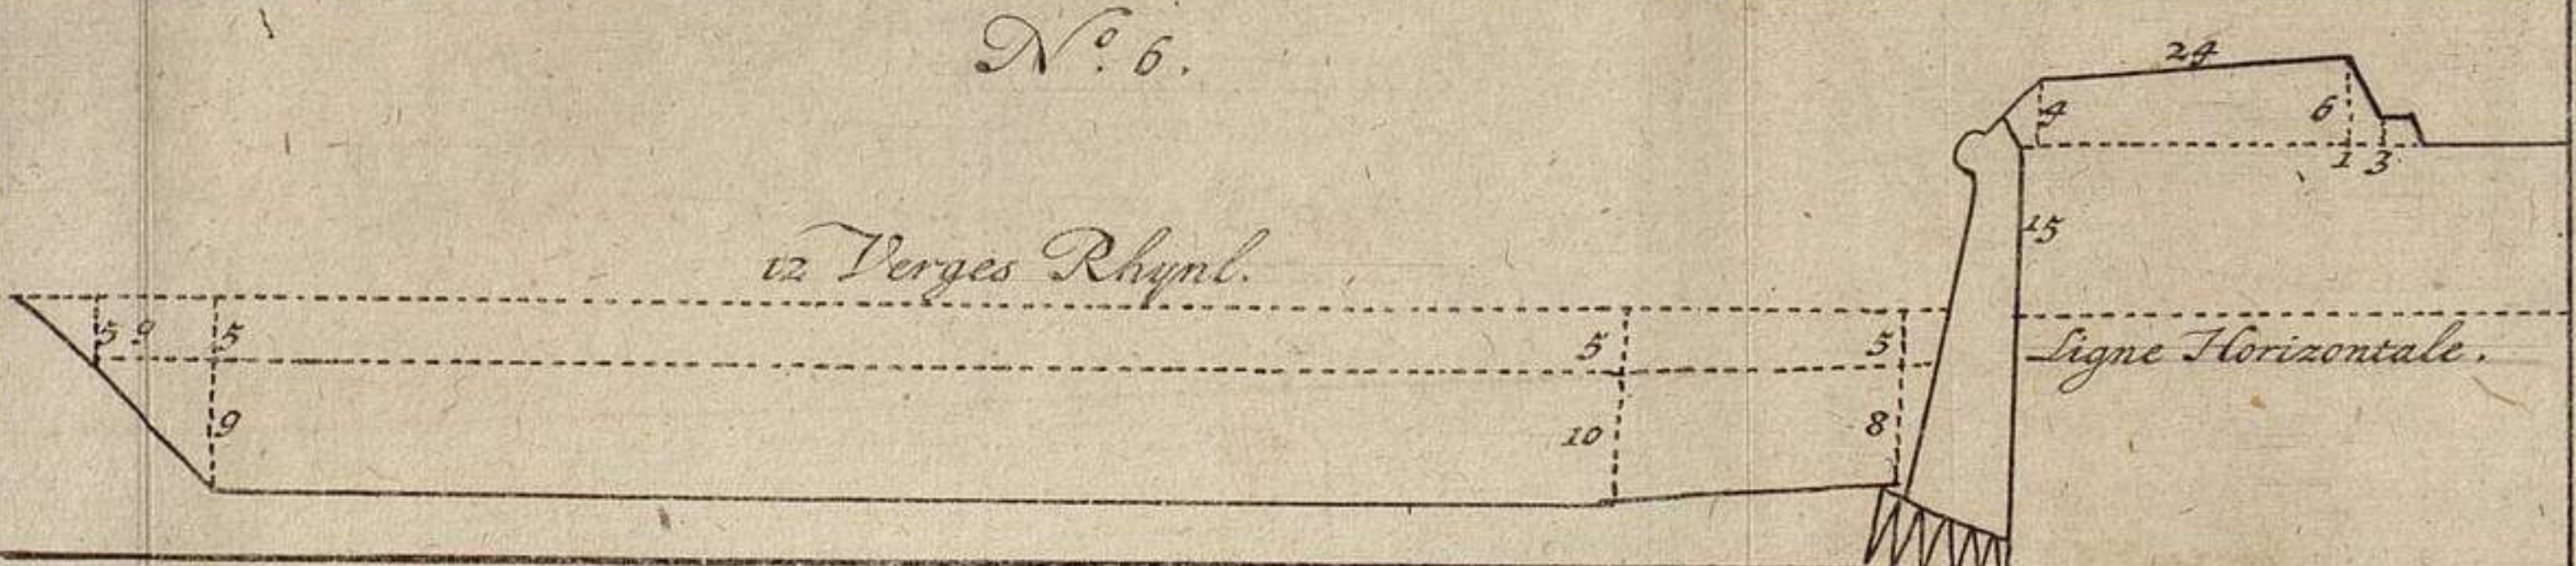 24
N.º 6.
4
6
1 3
15
12 Verges Rhynl.
5 9 5
5
5
Ligne Horizontale.
9
10
8